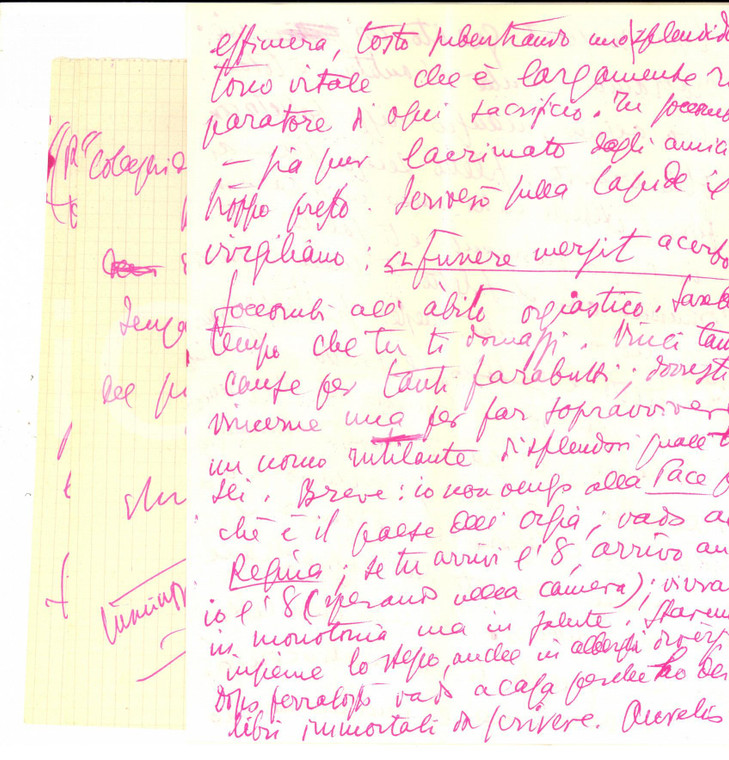 effimera, tosto subentrando uno splendido
tono vitale che è largamente ri
paratore di ogni sacrificio. Tu soccomb
— sia pur lacrimato dagli amici
troppo presto. Scriverò sulla lapide il
virgiliano: funere mersit acerbo
soccombi all' àbito orgiastico. Sarebb
tempo che tu ti domassi. Vinci tan
cause per tanti farabutti; dovresti
vincerne una per far sopravvivere
un uomo rutilante di splendori quale t
sei. Breve: io non vengo alla Pace p
chè è il paese dell' orgia; vado a
Regina; se tu arrivi l'8, arrivo an
io l'8 (sperando nella camera); vivra
in monotonia ma in salute. Starem
insieme lo stesso, anche in alberghi divers
Dopo ferragosto vado a casa perchè ho dei
libri immortali da scrivere. Aurelio
Senza